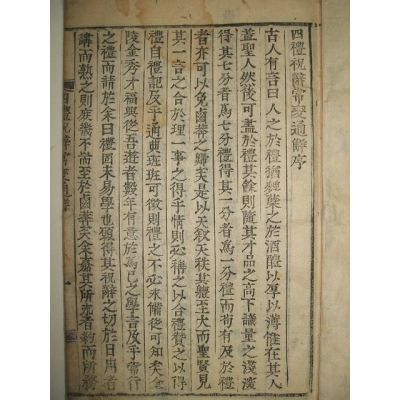 四禮祝辭常變通解序
古人有言曰人之於禮猶糵之於酒醲以厚以薄惟在其人
蓋聖人然後可盡於禮其餘則隨其才品之高下識量之淺深
得其七分者為七分禮得其一分者為一分禮而苟有及於禮
者亦可以免鹵莽之歸矣是以天叙天秩其軆至大而聖賢見
其一言之合於理一事之得乎情則必稱之以合禮贊之以得
禮自禮記及乎通典班班可徵則禮之不必求備後可知矣金
陵金秀才福興從吾遊者數年有意於為己之學言及乎常行
之禮而請於余曰禮固未易學也願得其祝辭之切於日用者
講而熟之則庶幾不